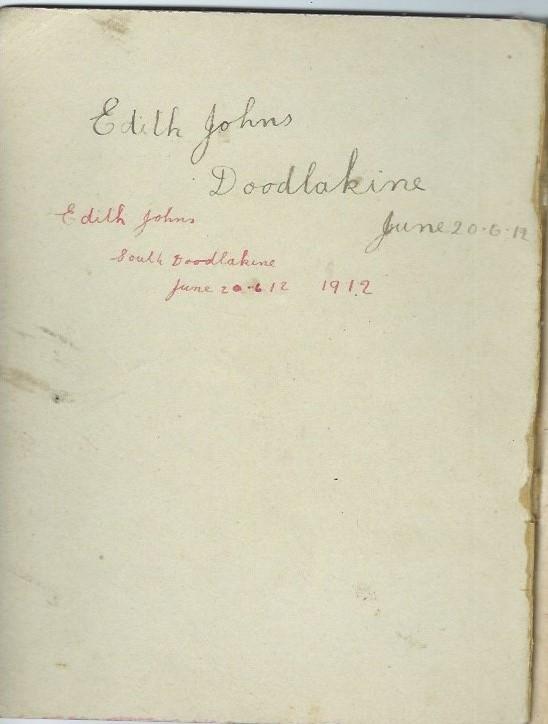 Edith Johns
Doodlakine
June 20.6.12
Edith Johns
South Doodlakine
June 20.6 12 1912